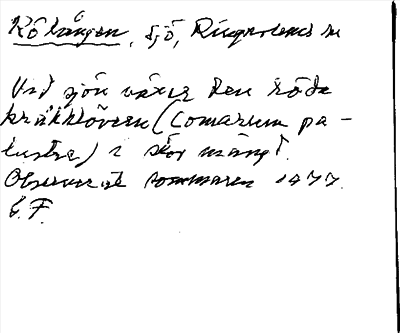 Rölången, sjö, Ringarums sn
Vid sjön växer den röda
kråkklövern (Comarum pa-
lustre) i stor mängd.
Observerat sommaren 1977.
E.F.